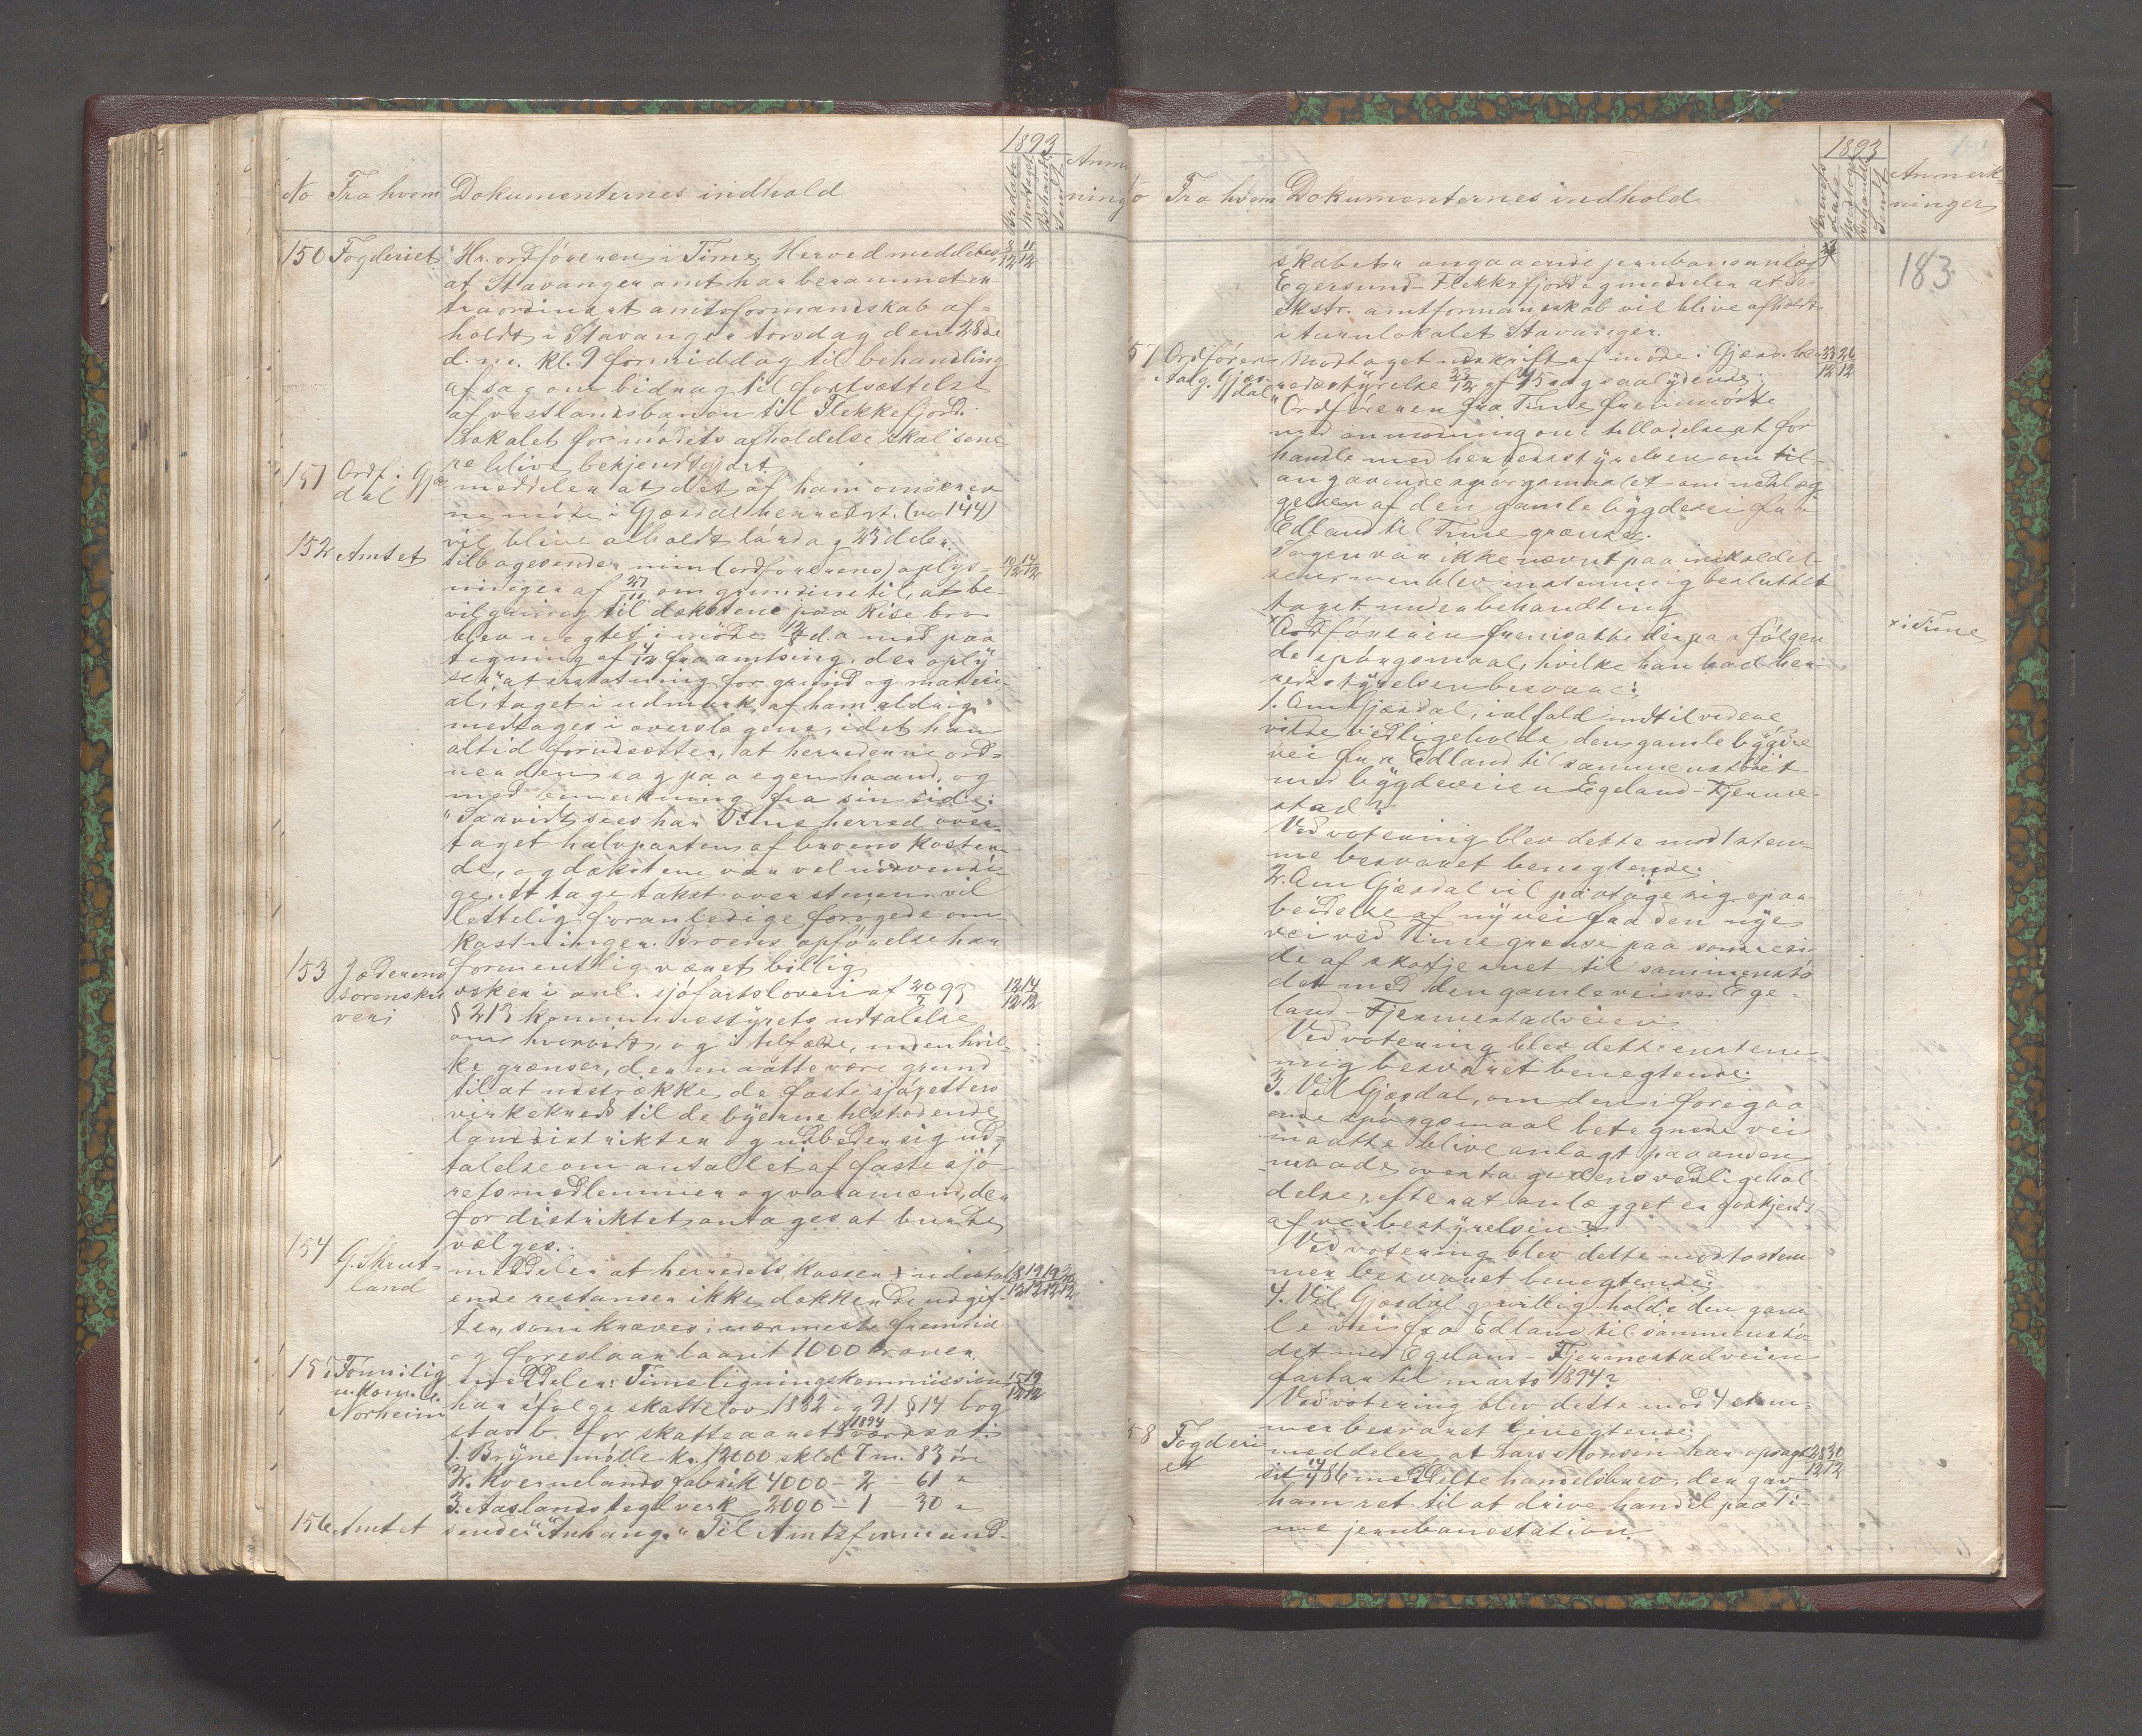 1893
No Fra hvem Dokumenternes indhold Brdato Modtaget Behandl Sendt Anm
ning
150 Fogderiet "Hr. ordføreren i Time. Herved meddeles 8/12 11/12
at Stavanger amt har berammet ex
traordinært amtsformandskab af-
holdt i Stavanger torsdag den 28de
d.m. kl. 9 formiddag til behandling
af sag om bidrag til fortsættelse
af vestlandsbanen til Flekkefjord.
Lokalet for mødets afholdelse skal sene
re blive bekjendtgjort.
151 Ordf. i Gjæs
dal
meddeler at det af ham omskrev
ne møde i Gjæsdal herredst. (no 144)
vil blive afholdt lørdag 23 dds.
152 Amtet tilbagesender min (ordførerens) oplys- 10/12 14/12
ninger af 27/11 om grunnene til, at be-
vilgning til dæksten paa Kise bro
blev negtet i møde d.a. med paa
tegning af 4/12 fra amtsing. der oply
ser at erstatning for grund og materi
al, taget i udmark, af ham aldrig
medtages i overslagene, idet han
altid forudsætter, at herrederne ord-
ner den sag paa egen haand, og
med bemerkning fra sin side:
"Saavidt sees har Time herred over-
taget halvparten af broens kosten
de, og dækstene var vel nødvendi-
ge. At tage takst over stenen vil
lettelig foranledige forøgede om
kostninger. Broens opførelse har
formentlig været billig
153 Jæderens
sorenskri
veri
ønsker i anl. sjøfartsloven af 20/7 93 12/12 14/12
§ 213 kommunestyrets udtalelse
om hvorvidt, og i tilfælde, inden hvil-
ke grænser, der maatte være grund
til at udstrække de faste sjøretters
virkekreds til de byerne tilstødende
landdistrikter og udbeder sig ud-
talelse om antallet af faste sjø
retsmedlemmer og varamænd, der
for distriktet antages at burde
vælges.
154 G. Skrut-
land
meddeler at herredets kasser + udestaa 18/12 19/12 19/12 20/12
ende restanser ikke dækker de udgif-
ter, som kræves i nærmeste fremtid
og foreslaar laant 1000 kroner.
155 Formilig
n.kom.
Norheim
meddeler: Time ligningskommission 15/12 19/12
har ifølge skattelov 1882 og 91. § 14 bog
stav b. for skatteaaret 1894 værdsat:
1. Bryne mølle kr. 12000 skld 7 m. 83 øre
2. Kvernelands fabrik 4000 - 2 61 "
3. Aaslands teglverk 2000 - 1 30 "
156 Amtet sender "Anhang" Til Amtsformand-
1893
o Fra hvem Dokumenternes indhold Brevets dato Modtaget Behandlet Sendt Anmerk-
ninger
183
skabet angaaende jernbaneanlæg
Egersund - Flekkefjord og meddeler at det
ekstr. amtformanskab vil blive afholdt
i turnlokalet Stavanger.
57 Ordføren
Aalg. Gjæs-
dal
Modtaget udskrift af møde i Gjæsd. her 23/12 26/12
redsstyrelse 23/12 af 15 sag saalydende:
"Ordføreren fra Time fremmødte
med anmodning om tilladelse at for
handle med herredsstyrelsen om til
angaaende spørgsmaalet om nedlæg
gelsen af den gamle bygdevei fra
Edland til Time grænse.
Sagen var ikke nævnt paa indkaldel
sen, men blev enstemmig besluttet
taget under behandling
x Ordføreren fremsatte derpaa følgen x i Time
de spørgsmaal, hvilke han bad her
redsstyrelsen besvare:
1. Om Gjæsdal, ialfald indtil videre
vilde vedligeholde den gamle bygde
vei fra Edland til sammenstødet
med bygdeveien Egeland - Fjerme-
stad?
Ved votering blev dette mod 1 stem
me besvaret benegtende.
2. Om Gjæsdal vil paatage sig oparbeidelse af ny vei fra den nye
vei ved Time grense paa søndre si
de af skotjernet til sammenstø
det med den gamle vei ved Ege-
land - Fjermestadveien
Ved votering blev dette enstem-
mig besvaret benegtende.
3. Vil Gjæsdal, om den i foregaa
ende spørgsmaal betegnede vei
maatte blive anlagt paa anden
maade, overtage dens vedligehol
delse, efterat anlægget er godkjendt
af veibestyrelsen?
Ved votering blev dette mod to stem
mer besvaret benegtende.
4. Vil Gjæsdal godvillig holde den gam
le vei fra Edland til sammenstø
det med Egeland - Fjermestadveien
farbar til marts 1894?
Ved votering blev dette mod 4 stem-
mer besvaret benegtende.
58 Fogderi
et
meddeler, at Lars Monsen har opsagt 28/12 30/12
sit 14/4 86 meddelte handelsbrev, der gav
ham ret til at drive handel paa Ti-
me jernbanestation.